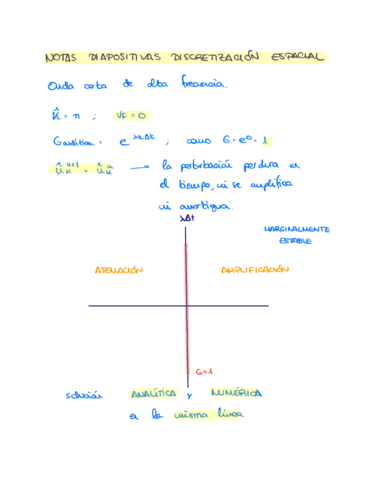 NOTAS DIAPOSITIVAS DISCRETIZACIÓN ESPACIAL
Onda corta de alta frecuencia.
K̂ = π ; VF = 0
Ganalítica = e^λΔt ; como G = e⁰ = 1
û_K^n+1 = û_K^n → la perturbación perdura en
el tiempo, ni se amplifica
ni amortigua.
λΔt
MARGINALMENTE
ESTABLE
ATENUACIÓN AMPLIFICACIÓN
G=1
solución ANALÍTICA y NUMÉRICA
en la misma línea